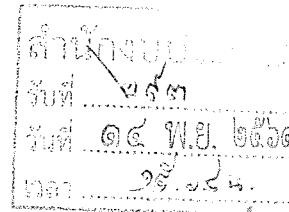 สำนักงบป
รับที่ ๒๙๓
วันที่ ๑๔ พ.ย. ๒๕๖๑
เวลา น.